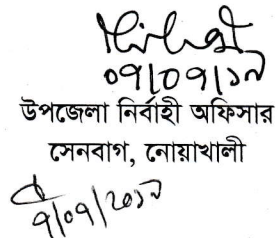 ০৭/০৭/১৯
উপজেলা নির্বাহী অফিসার
সেনবাগ, নোয়াখালী
৭/০৭/২০১৯